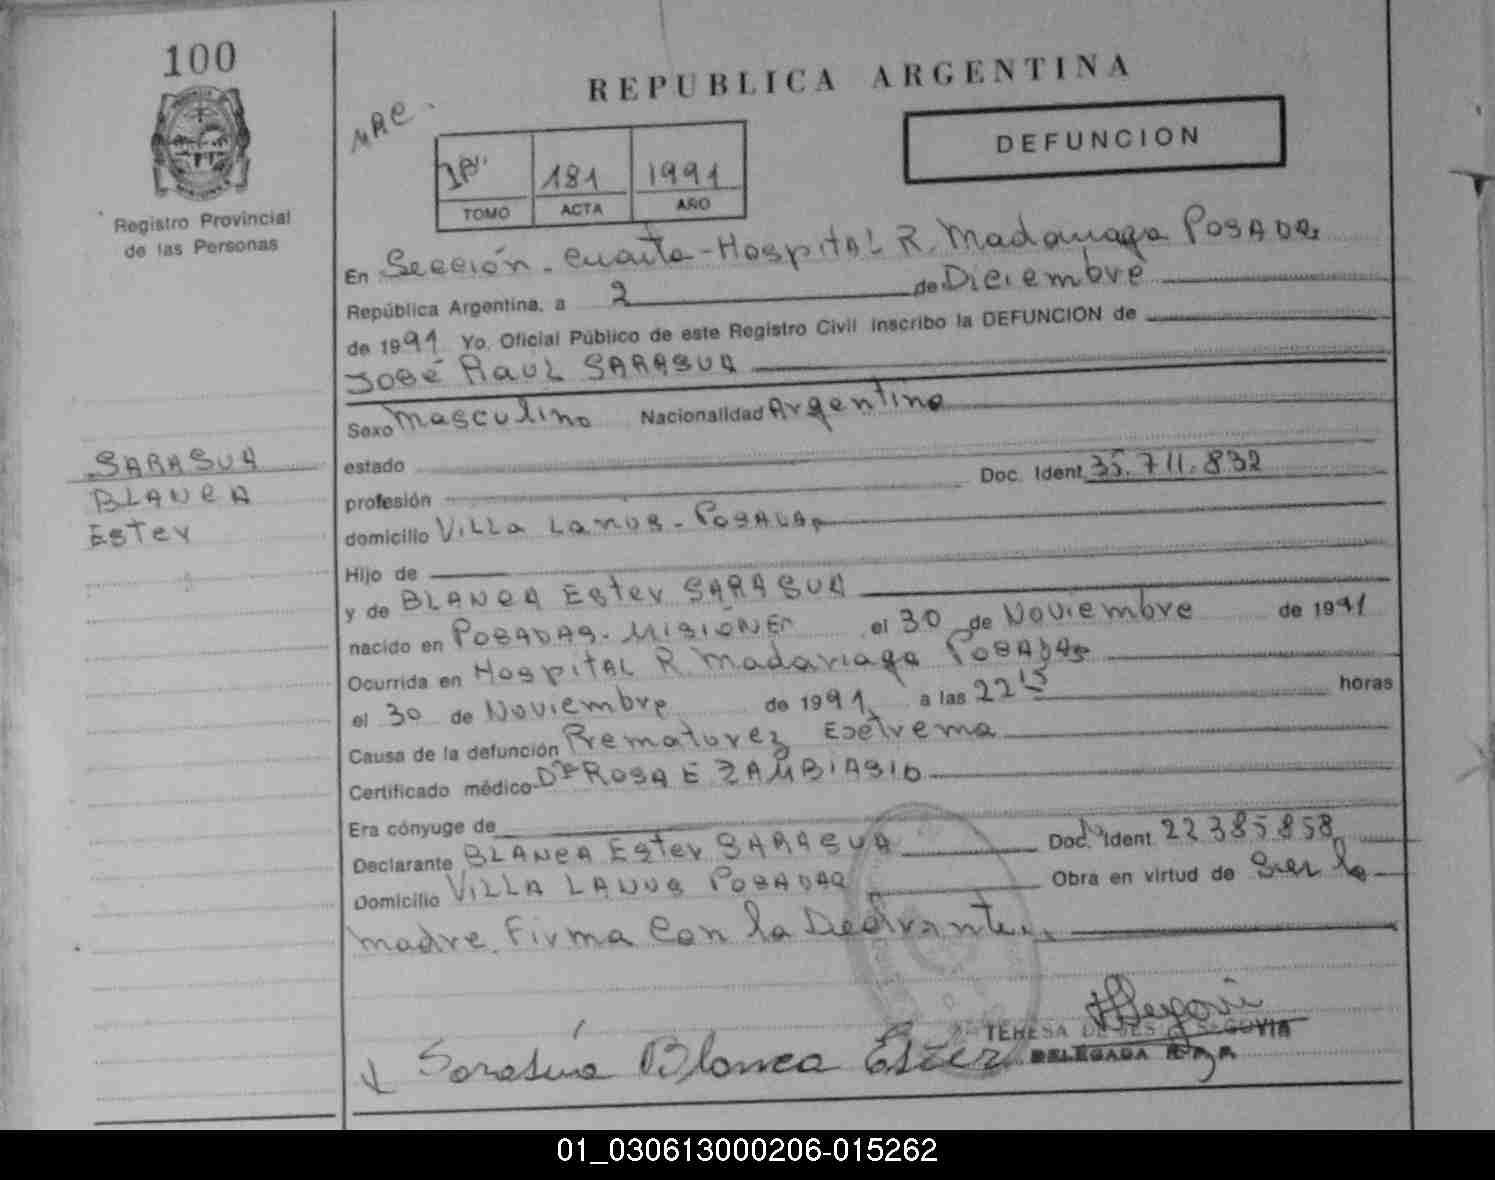 100
Registro Provincial
de las Personas
REPUBLICA ARGENTINA
DEFUNCION
181 1991
TOMO ACTA AÑO
En Sección. Cuarta - Hospital R. Madariaga POSADAS
República Argentina, a 2 de Diciembre
de 1991 Yo, Oficial Público de este Registro Civil inscribo la DEFUNCION de
José Raul SARASUA
Sexo Masculino Nacionalidad Argentino
estado
Doc. Ident. 35.711.832
profesión
domicilio Villa Lanus - Posadas
Hijo de
y de BLANCA Ester SARASUA
nacido en POSADAS - MISIONES el 30 de Noviembre de 1991
Ocurrida en Hospital R. Madariaga Posadas
el 30 de Noviembre de 1991, a las 22 15 horas
Causa de la defunción Prematurez Extrema
Certificado médico Dra ROSA E ZAMBIASIO
Era cónyuge de
Declarante BLANCA Ester SARASUA Doc. Ident. 22385858
Domicilio VILLA LANUS POSADAS Obra en virtud de Ser la
madre. Firma Con la Declarante..
SARASUA
BLANCA
Ester
Sarasúa Blanca Ester
TERESA SEGOVIA
DELEGADA
01_030613000206-015262